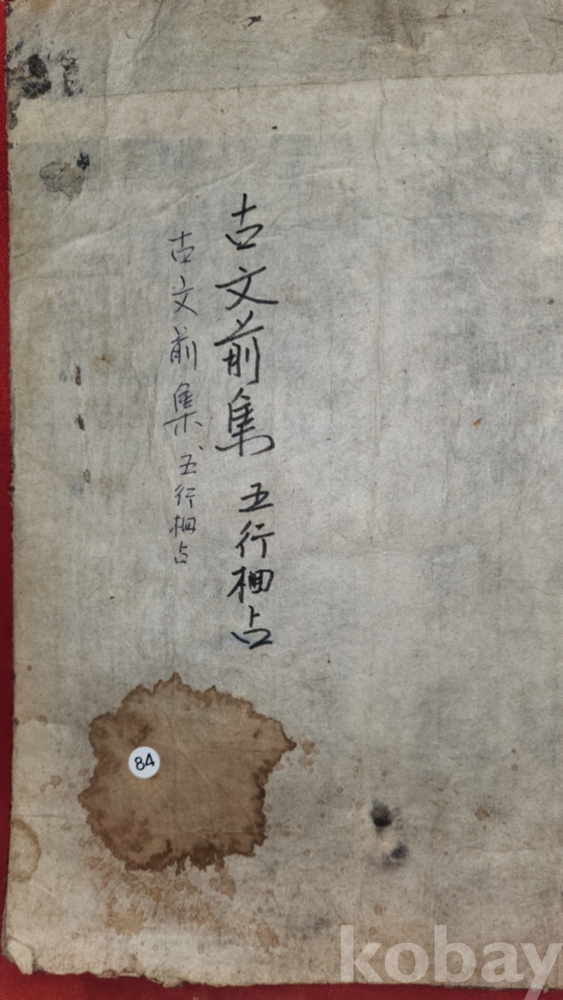 古文前集 五行栶占
古文前集 五行栶占
84
kobay